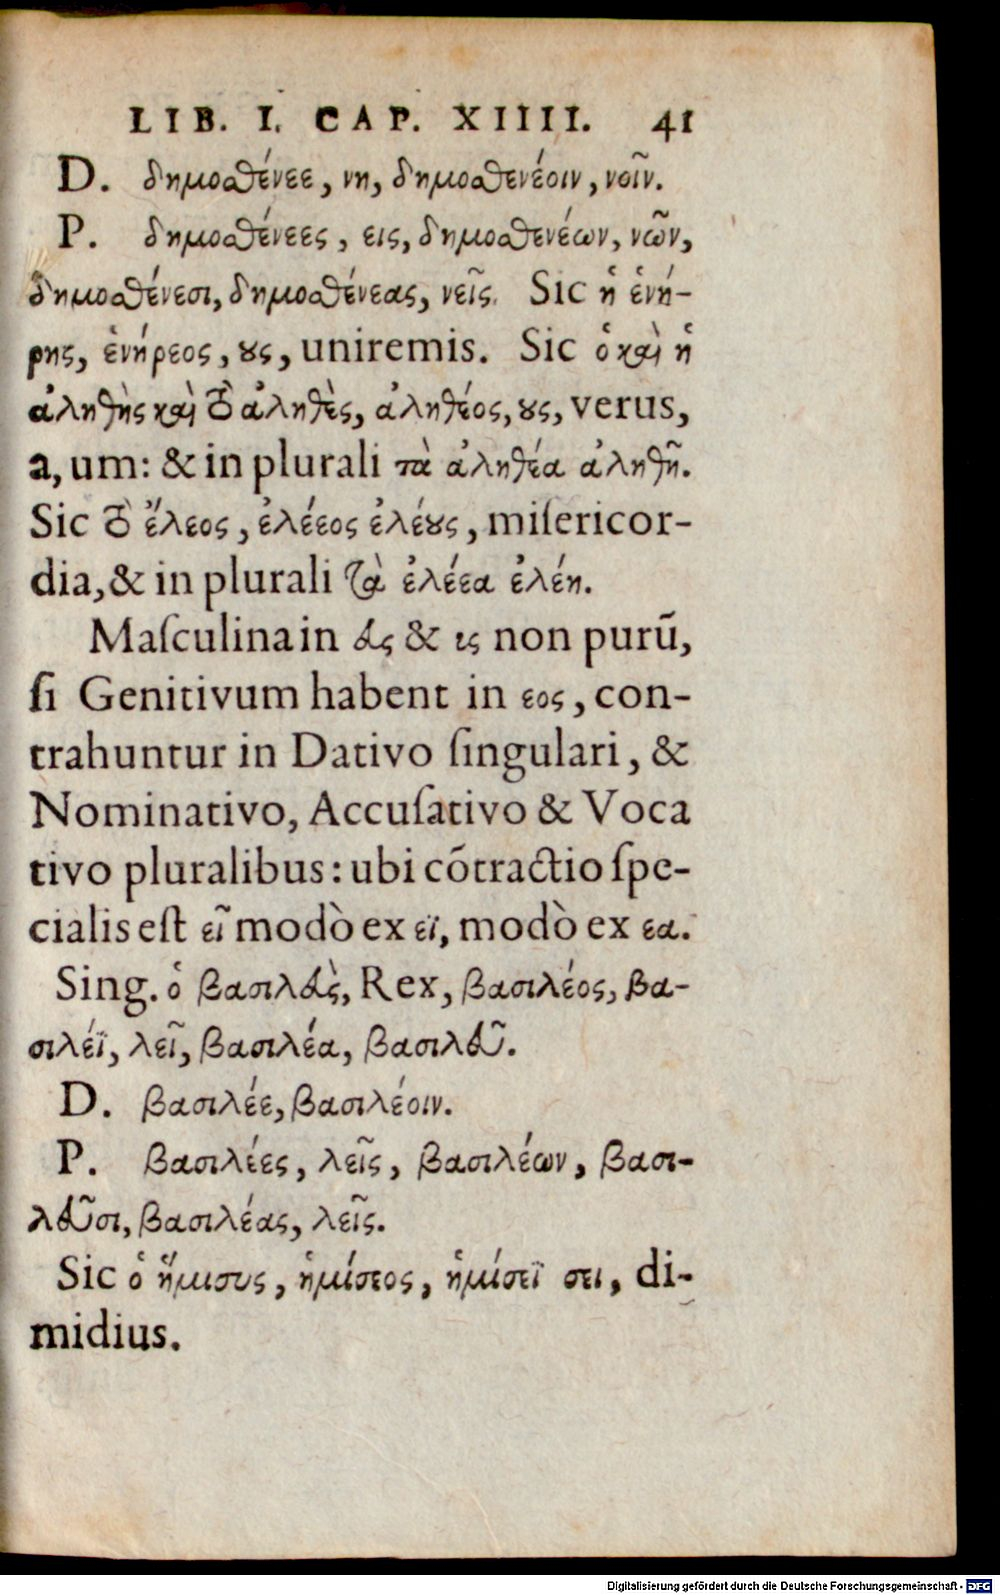 LIB. I. CAP. XIIII. 41
D. δημοσθένεε, νη, δημοσθενέοιν, νοῖν.
P. δημοσθένεες, εις, δημοσθενέων, νῶν,
δημοσθένεσι, δημοσθένεας, νεῖς. Sic ἡ ἑνή-
ρης, ἑνήρεος, ους, uniremis. Sic ὁ καὶ ἡ
ἀληθὴς καὶ τὸ ἀληθὲς, ἀληθέος, ους, verus,
a, um: & in plurali τὰ ἀληθέα ἀληθῆ.
Sic τὸ ἔλεος, ἐλέεος ἐλέους, miſericor-
dia, & in plurali τὰ ἐλέεα ἐλέη.
Maſculina in ευς & ις non purũ,
ſi Genitivum habent in εος, con-
trahuntur in Dativo ſingulari, &
Nominativo, Accuſativo & Voca
tivo pluralibus: ubi cõtractio ſpe-
cialis eſt εῖ modò ex εϊ, modò ex εα.
Sing. ὁ βασιλεὺς, Rex, βασιλέος, βα-
σιλέϊ, λεῖ, βασιλέα, βασιλεῦ.
D. βασιλέε, βασιλέοιν.
P. βασιλέες, λεῖς, βασιλέων, βασι-
λεῦσι, βασιλέας, λεῖς.
Sic ὁ ἥμισυς, ἡμίσεος, ἡμίσεϊ σει, di-
midius.
Digitalisierung gefördert durch die Deutsche Forschungsgemeinschaft - DFG